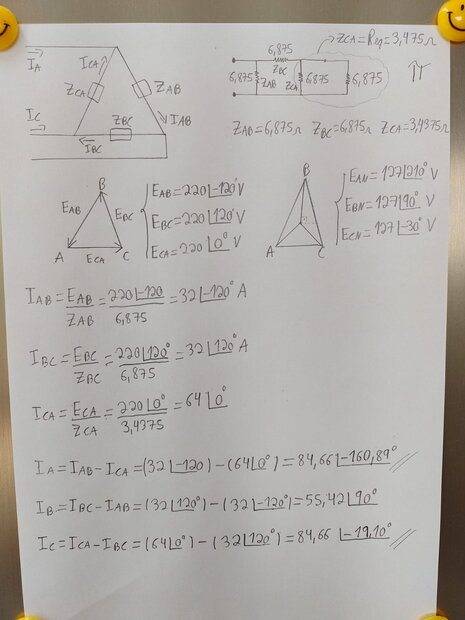 I_A I_CA Z_CA Z_AB
I_C Z_BC I_AB
I_BC
6,875 Z_CA=Req=3,475Ω
6,875 Z_BC Z_AB Z_CA 6,875 6,875 π
Z_AB=6,875Ω Z_BC=6,875Ω Z_CA=3,4375Ω
B
E_AB E_BC
A E_CA C
E_AB=220∠-120° V
E_BC=220∠120° V
E_CA=220∠0° V
B
A C
E_AN=127∠210° V
E_BN=127∠90° V
E_CN=127∠-30° V
I_AB=E_AB/Z_AB=220∠-120/6,875=32∠-120° A
I_BC=E_BC/Z_BC=220∠120°/6,875=32∠120° A
I_CA=E_CA/Z_CA=220∠0°/3,4375=64∠0°
I_A=I_AB-I_CA=(32∠-120)-(64∠0°)=84,66∠-160,89° //
I_B=I_BC-I_AB=(32∠120°)-(32∠-120°)=55,42∠90°
I_C=I_CA-I_BC=(64∠0°)-(32∠120°)=84,66 ∠-19,10° //